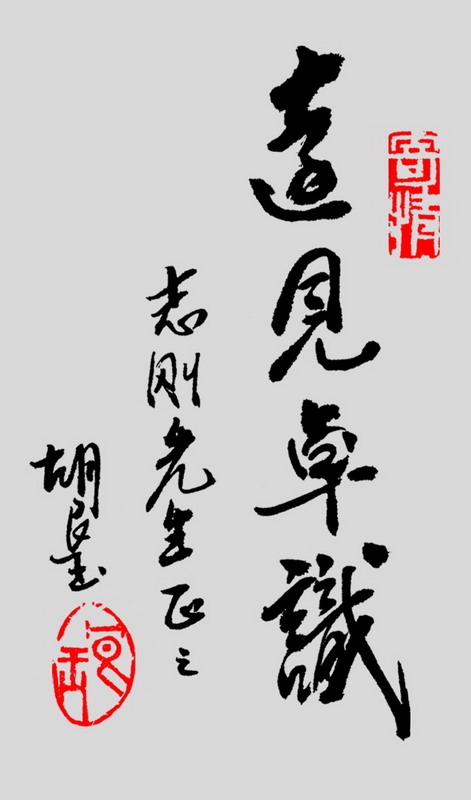 遠見卓識
志刚先生正之
胡良墨